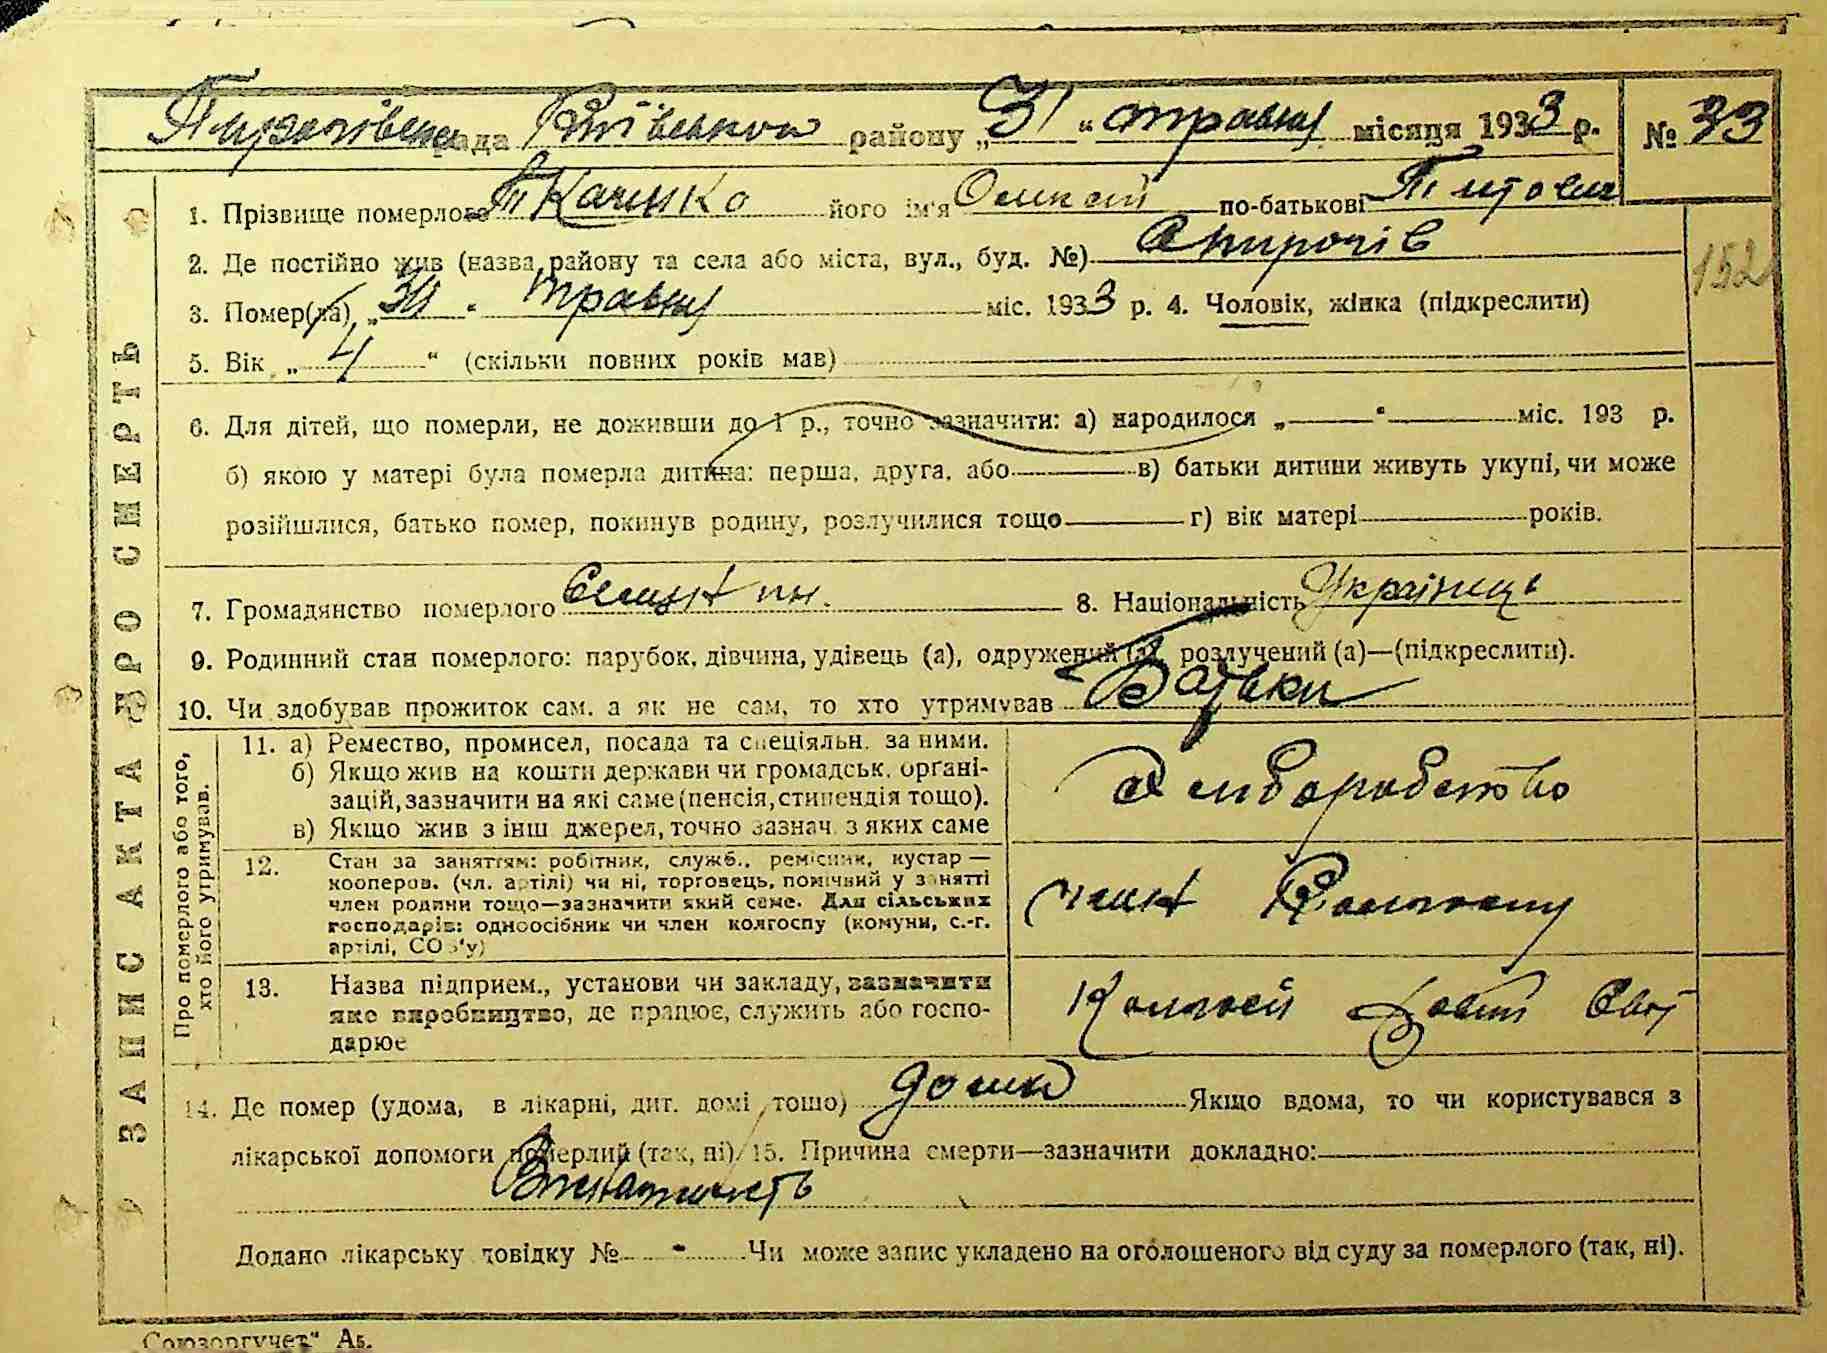 Пирогівська рада Київського району „31“ травня місяця 1933 р. № 33
1. Прізвище померлого Ткаченко його ім'я Олексій по-батькові Титович
2. Де постійно жив (назва району та села або міста, вул., буд. №) с Пирогів
3. Помер(ла) „30“ травня міс. 1933 р. 4. Чоловік, жінка (підкреслити)
152
5. Вік „4“ (скільки повних років мав)
6. Для дітей, що померли, не доживши до 1 р., точно зазначити: а) народилося „—“ міс. 193 р.
б) якою у матері була померла дитина: перша, друга, або в) батьки дитини живуть укупі, чи може
розійшлися, батько помер, покинув родину, розлучилися тощо г) вік матері років.
7. Громадянство померлого 8. Національність Українець
9. Родинний стан померлого: парубок, дівчина, удівець (а), одружений (а), розлучений (а)—(підкреслити).
10. Чи здобував прожиток сам, а як не сам, то хто утримував Батьки
ЗАПИС АКТА ПРО СМЕРТЬ
Про померлого або того, хто його утримував.
11. а) Ремество, промисел, посада та спеціяльн. за ними.
б) Якщо жив на кошти держави чи громадськ. органі-
зацій, зазначити на які саме (пенсія, стипендія тощо).
в) Якщо жив з інш джерел, точно зазнач. з яких саме
Хлиборобство
12. Стан за заняттям: робітник, служб., ремісник, кустар —
кооперов. (чл. артілі) чи ні, торговець, помічний у занятті
член родини тощо—зазначити який саме. Для сільських
господарів: одноосібник чи член колгоспу (комуни, с.-г.
артілі, СОЗ'у)
член Колгоспу
13. Назва підприєм., установи чи закладу, зазначити
яке виробництво, де працює, служить або госпо-
дарює
14. Де помер (удома, в лікарні, дит. домі, тощо) дома Якщо вдома, то чи користувався з
лікарської допомоги померлий (так, ні) 15. Причина смерти—зазначити докладно:
Додано лікарську довідку № - Чи може запис укладено на оголошеного від суду за померлого (так, ні).
„Союзоргучет“ А5.